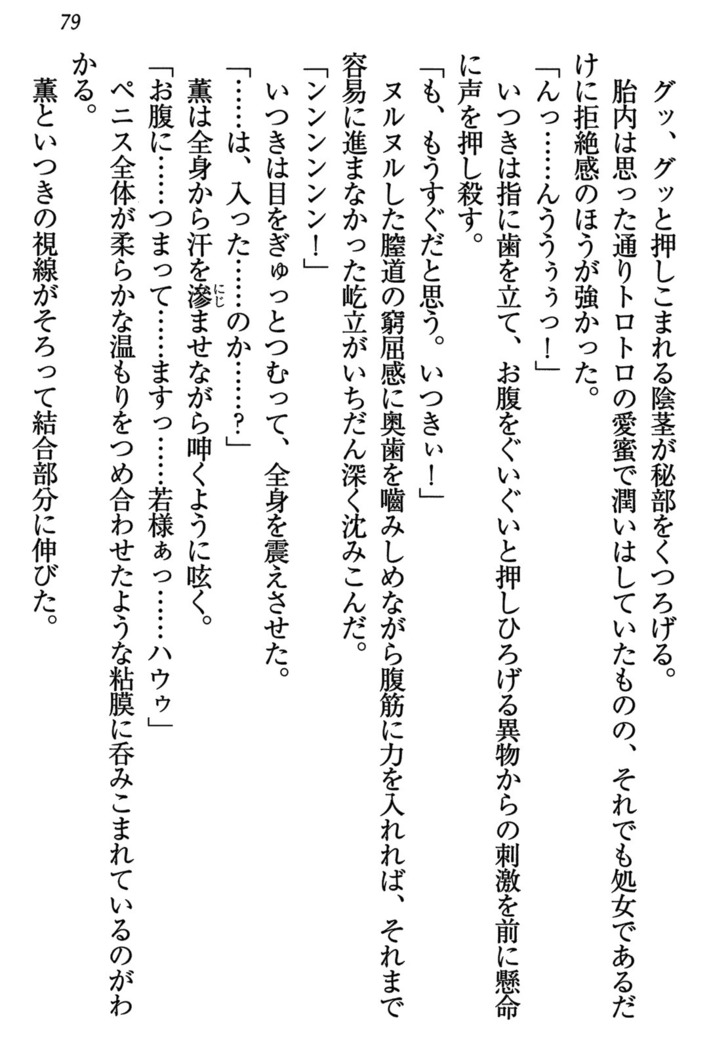 79
グッ、グッと押しこまれる陰茎が秘部をくつろげる。
胎内は思った通りトロトロの愛蜜で潤いはしていたものの、それでも処女であるだ
けに拒絶感のほうが強かった。
「んっ……んううぅぅっ！」
いつきは指に歯を立て、お腹をぐいぐいと押しひろげる異物からの刺激を前に懸命
に声を押し殺す。
「も、もうすぐだと思う。いつきぃ！」
ヌルヌルした膣道の窮屈感に奥歯を嚙みしめながら腹筋に力を入れれば、それまで
容易に進まなかった屹立がいちだん深く沈みこんだ。
「ンンンンンン！」
いつきは目をぎゅっとつむって、全身を震えさせた。
「……は、入った……のか……？」
薫は全身から汗を滲ませながら呻くように呟く。
にじ
「お腹に……つまって……ますっ……若様ぁっ……ハウゥ」
ペニス全体が柔らかな温もりをつめ合わせたような粘膜に呑みこまれているのがわ
かる。
薫といつきの視線がそろって結合部分に伸びた。